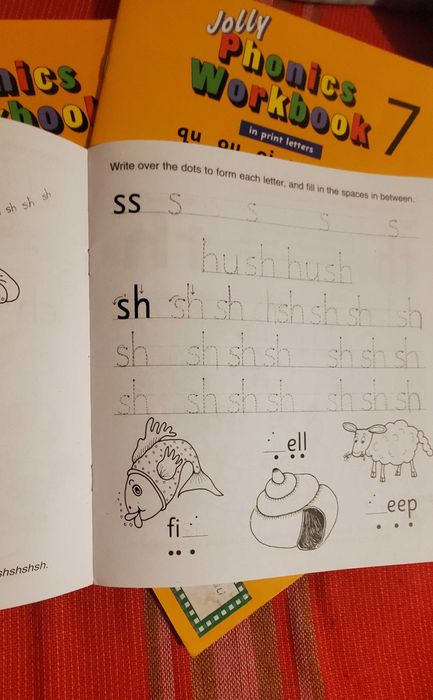 Jolly
Phonics
Workbook 7
in print letters
qu ou oi
Write over the dots to form each letter, and fill in the spaces in between.
ss s s s s
hush hush
sh sh sh sh sh sh sh
sh sh sh sh sh sh sh
sh sh sh sh sh sh sh
ell
eep
fi
sh sh sh
shshshsh.